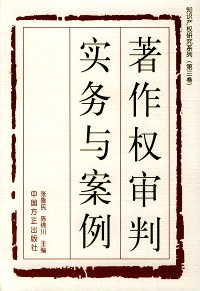 知识产权研究系列（第三卷）
著作权审判
实务与案例
张鲁民 陈锦川 主编
中国方正出版社